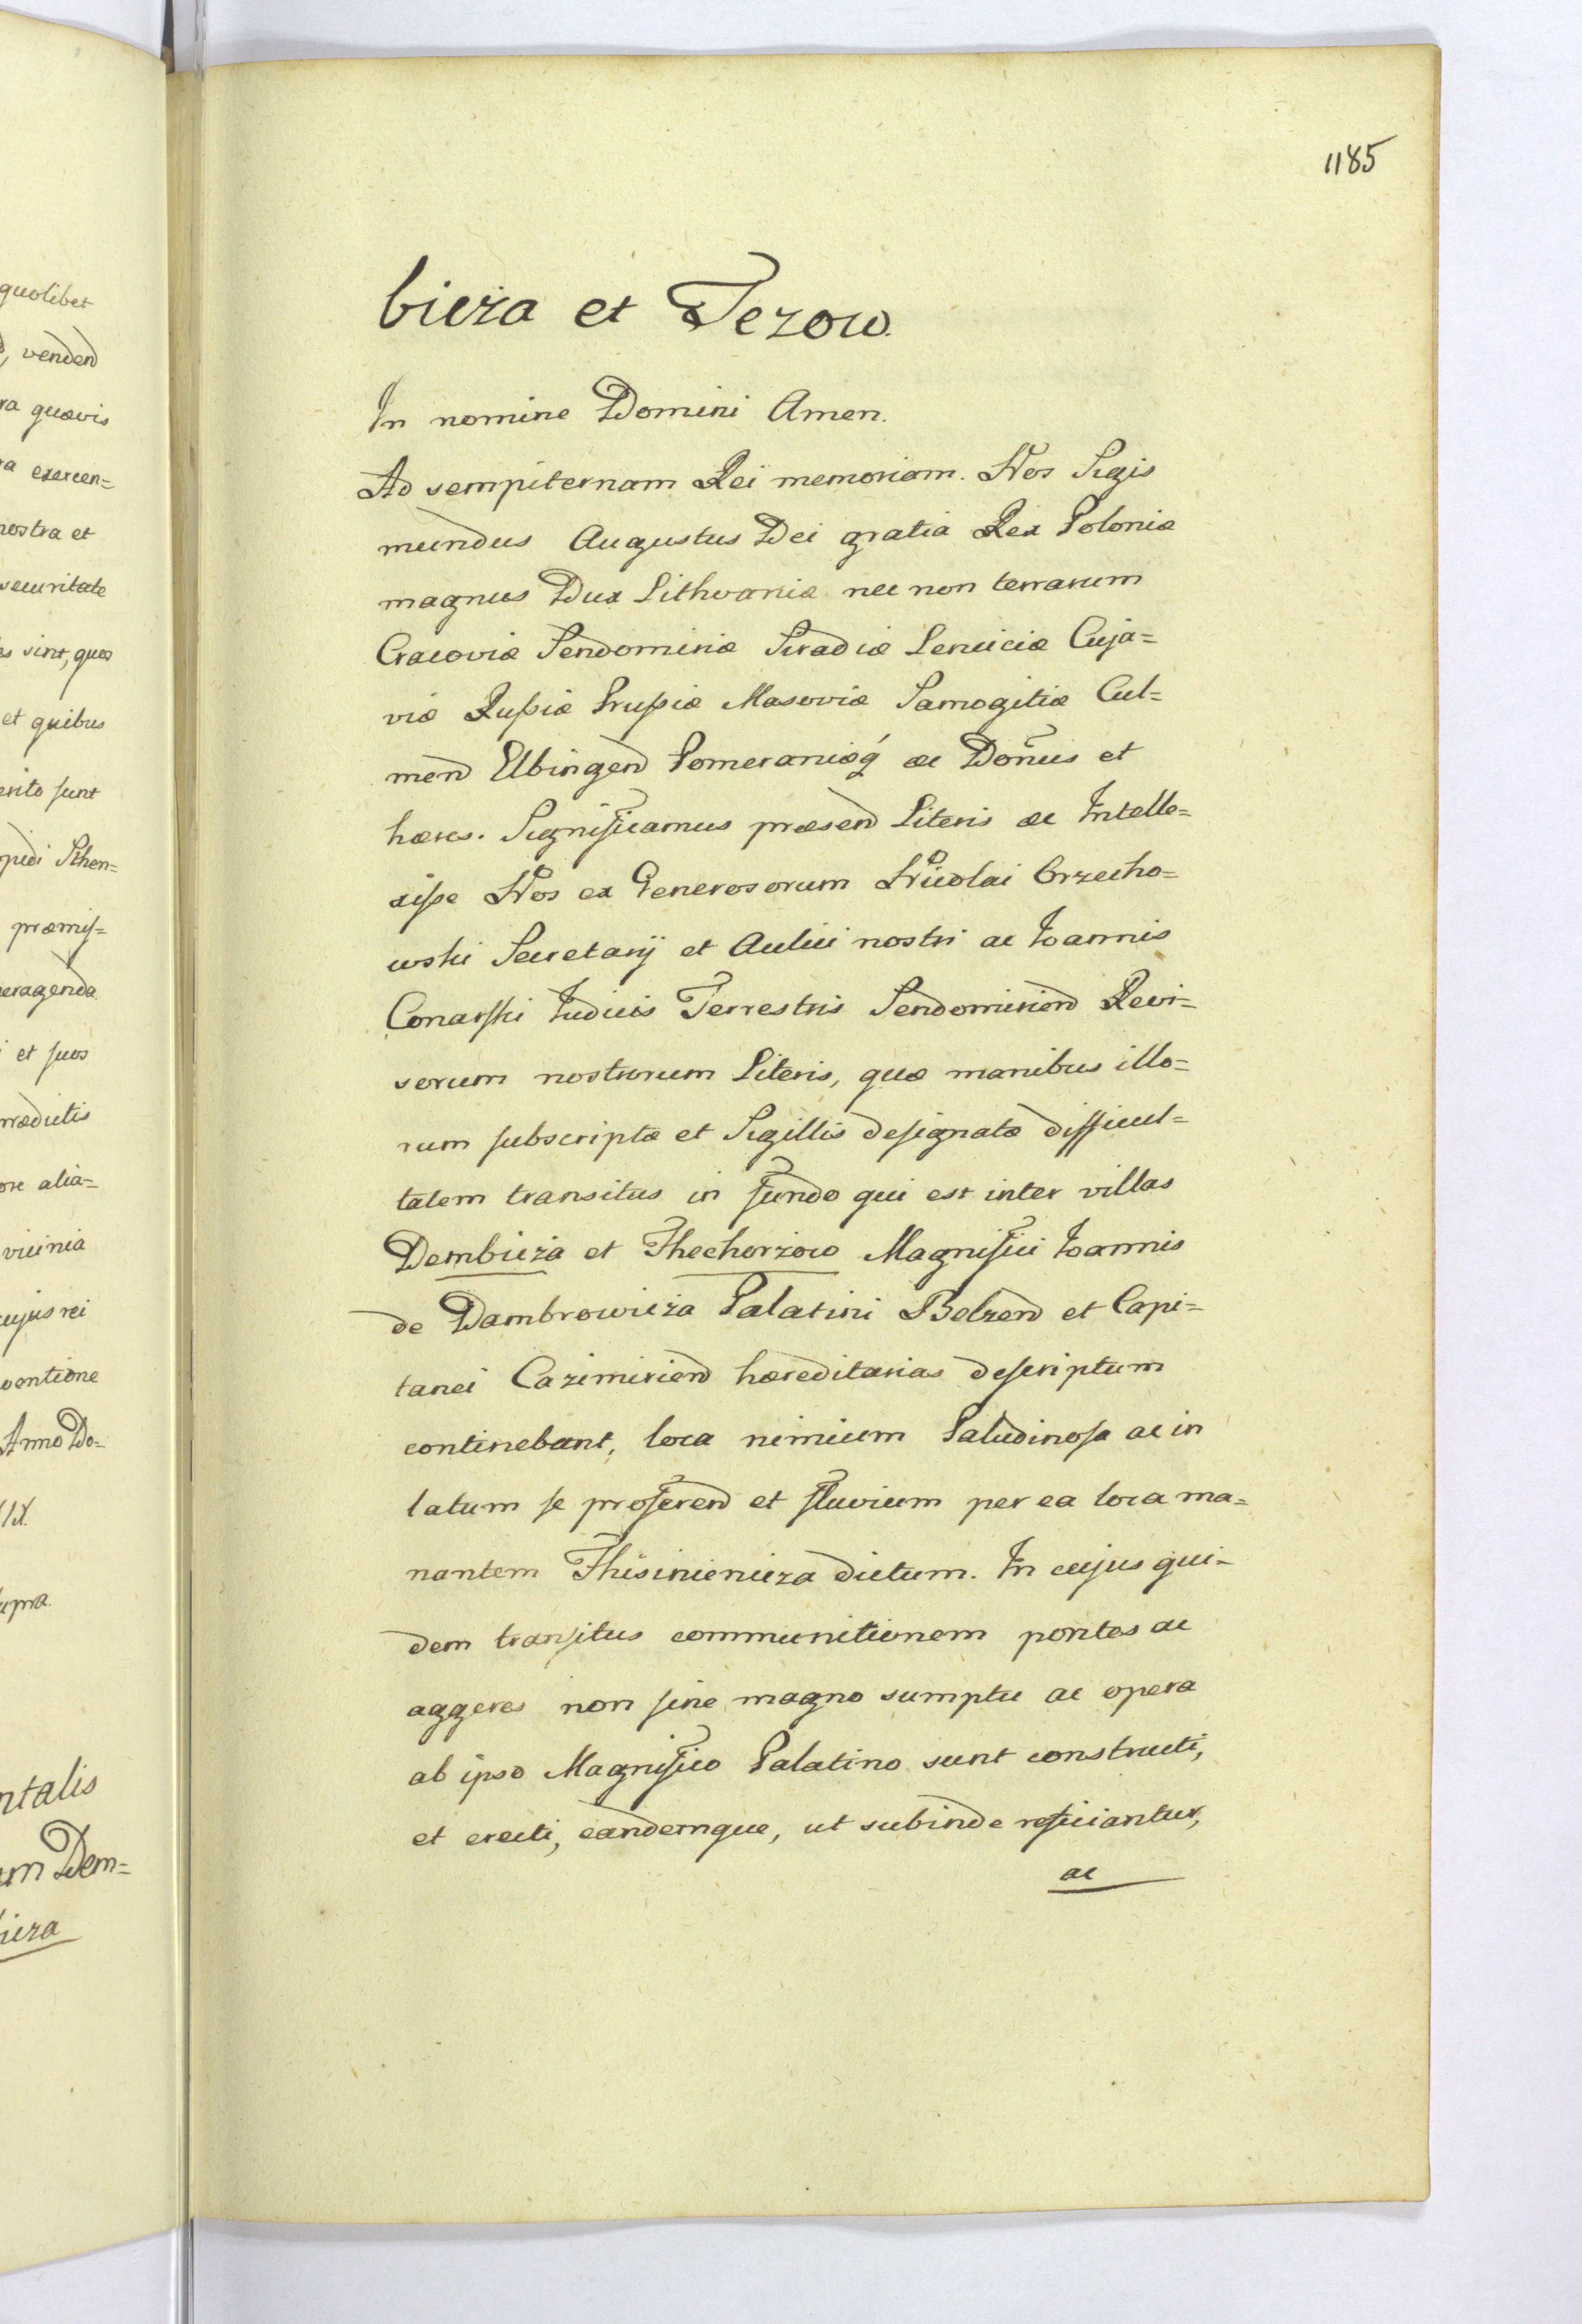 quolibet
vendend
ra quævis
ra exercen=
nostra et
securitate
es sint, quos
et quibus
erito sunt
præmiſ=
peragenda
et ſuos
rædictis
ore alia=
vicinia
cujus rei
ventione
Anno Do=
upra.
ntalis
um Dem=
bicza
1185
bicza et Jezow.
In nomine Domini Amen.
Ad sempiternam Rei memoriam. Nos Sigis
mundus Augustus Dei gratia Rex Poloniæ
magnus Dux Lithvaniæ nec non terrarum
Cracoviæ Sendomiriæ Siradiæ Lenciciæ Cuja=
viæ Rußiæ Prußiæ Masoviæ Samogitiæ Cul=
mend Elbingend Pomeraniæq́ ac Dom̃us et
hæres. Significamus præsend Literis ac Intelle=
xiſse Nos ex Generosorum Nicolai Orzecho=
wski Secretarÿ et Aulici nostri ac Joannis
Conarſki Judicis Terrestris Sendomiriend Revi=
sorum nostrorum Literis, quæ manibus illo=
rum ſubscriptæ et Sigillis deſignatæ difficul=
tatem transitus in fundo qui est inter villas
Dembicza et Thechorzow Magnifici Joannis
de Dambrowicza Palatini Belzend et Capi=
tanei Cazimiriend hæreditarias deſcriptum
continebant, loca nimium Paludinoſa ac in
latum ſe proferend et fluvium per ea loca ma=
nantem Thisinienicza dictum. In cujus qui=
dem tranſitus communitionem pontes ac
aggeres non ſine magno sumptu ac opera
ab ipso Magnifico Palatino sunt constructi,
et erecti, eandemque, ut subinde reficiantur,
ac